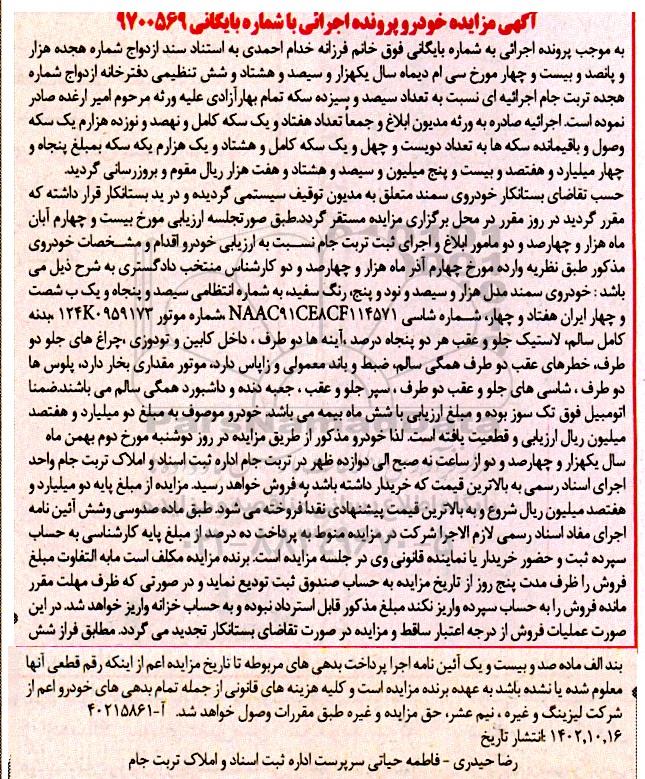 آگهی مزایده خودرو پرونده اجرائی با شماره بایگانی ۹۷۰۰۵۶۹
به موجب پرونده اجرائی به شماره بایگانی فوق خانم فرزانه خدام احمدی به استناد سند ازدواج شماره هجده هزار
و پانصد و بیست و چهار مورخ سی ام دیماه سال یکهزار و سیصد و هشتاد و شش تنظیمی دفترخانه ازدواج شماره
هجده تربت جام اجرائیه ای نسبت به تعداد سیصد و سیزده سکه تمام بهار آزادی علیه ورثه مرحوم امیر ارغده صادر
نموده است. اجرائیه صادره به ورثه مدیون ابلاغ و جمعاً تعداد هفتاد و یک سکه کامل و نهصد و نوزده هزارم یک سکه
وصول و باقیمانده سکه ها به تعداد دویست و چهل و یک سکه کامل و هشتاد و یک هزارم یکه سکه بمبلغ پنجاه و
چهار میلیارد و هفتصد و بیست و پنج میلیون و سیصد و هشتاد و هفت هزار ریال مقوم و بروزرسانی گردید.
حسب تقاضای بستانکار خودروی سمند متعلق به مدیون توقیف سیستمی گردیده و در ید بستانکار قرار داشته که
مقرر گردید در روز مقرر در محل برگزاری مزایده مستقر گردد.طبق صورتجلسه ارزیابی مورخ بیست و چهارم آبان
ماه هزار و چهارصد و دو مامور ابلاغ و اجرای ثبت تربت جام نسبت به ارزیابی خودرو اقدام و مشخصات خودروی
مذکور طبق نظریه وارده مورخ چهارم آذر ماه هزار و چهارصد و دو کارشناس منتخب دادگستری به شرح ذیل می
باشد : خودروی سمند مدل هزار و سیصد و نود و پنج، رنگ سفید، به شماره انتظامی سیصد و پنجاه و یک ب شصت
و چهار ایران هفتاد و چهار، شماره شاسی NAAC۹۱CEACF۱۱۴۵۷۱ ،شماره موتور ۱۲۴K۰۹۵۹۱۷۳ ،بدنه
کامل سالم، لاستیک جلو و عقب هر دو پنجاه درصد ،آینه ها دو طرف ، داخل کابین و تودوزی ،چراغ های جلو دو
طرف، خطرهای عقب دو طرف همگی سالم، ضبط و باند معمولی و زاپاس دارد، موتور مقداری بخار دارد، پلوس ها
دو طرف ، شاسی های جلو و عقب دو طرف ، سپر جلو و عقب ، جعبه دنده و داشبورد همگی سالم می باشند.ضمنا
اتومبیل فوق تک سوز بوده و مبلغ ارزیابی با شش ماه بیمه می باشد. خودرو موصوف به مبلغ دو میلیارد و هفتصد
میلیون ریال ارزیابی و قطعیت یافته است. لذا خودرو مذکور از طریق مزایده در روز دوشنبه مورخ دوم بهمن ماه
سال یکهزار و چهارصد و دو از ساعت نه صبح الی دوازده ظهر در تربت جام اداره ثبت اسناد و املاک تربت جام واحد
اجرای اسناد رسمی به بالاترین قیمت که خریدار داشته باشد به فروش خواهد رسید. مزایده از مبلغ پایه دو میلیارد و
هفتصد میلیون ریال شروع و به بالاترین قیمت پیشنهادی نقداً فروخته می شود. طبق ماده صدوسی وشش آئین نامه
اجرای مفاد اسناد رسمی لازم الاجرا شرکت در مزایده منوط به پرداخت ده درصد از مبلغ پایه کارشناسی به حساب
سپرده ثبت و حضور خریدار یا نماینده قانونی وی در جلسه مزایده است. برنده مزایده مکلف است مابه التفاوت مبلغ
فروش را ظرف مدت پنج روز از تاریخ مزایده به حساب صندوق ثبت تودیع نماید و در صورتی که ظرف مهلت مقرر
مانده فروش را به حساب سپرده واریز نکند مبلغ مذکور قابل استرداد نبوده و به حساب خزانه واریز خواهد شد. در این
صورت عملیات فروش از درجه اعتبار ساقط و مزایده در صورت تقاضای بستانکار تجدید می گردد. مطابق فراز شش
بند الف ماده صد و بیست و یک آئین نامه اجرا پرداخت بدهی های مربوطه تا تاریخ مزایده اعم از اینکه رقم قطعی آنها
معلوم شده یا نشده باشد به عهده برنده مزایده است و کلیه هزینه های قانونی از جمله تمام بدهی های خودرو اعم از
شرکت لیزینگ و غیره ، نیم عشر، حق مزایده و غیره طبق مقررات وصول خواهد شد. آ-۴۰۲۱۵۸۶۱
۱۴۰۲,۱۰,۱۶ :انتشار تاریخ
رضا حیدری - فاطمه حیاتی سرپرست اداره ثبت اسناد و املاک تربت جام